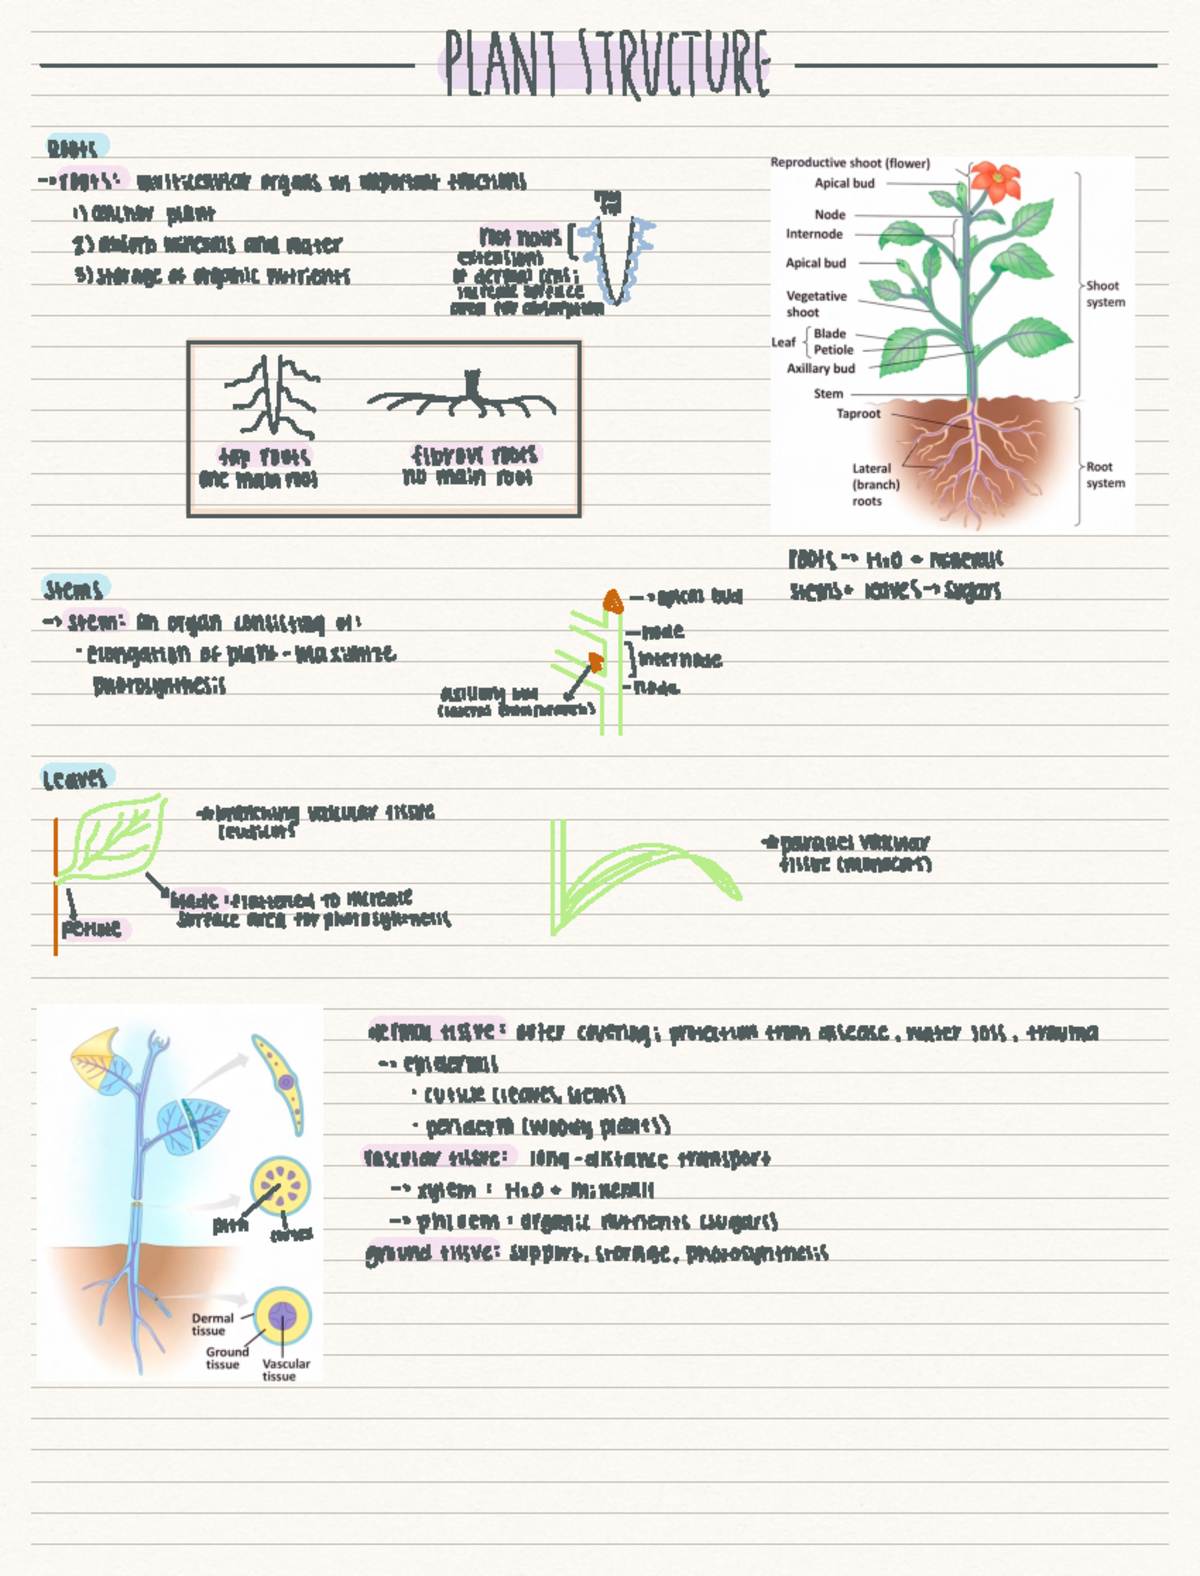 PLANT STRUCTURE
Roots
→ roots: multicellular organs w/ important functions
1) anchor plant
2) absorb minerals and water
3) storage of organic nutrients
root hairs
extensions
of dermal cells;
increase surface
area for absorption
tap roots
one main root
fibrous roots
no main root
Reproductive shoot (flower)
Apical bud
Node
Internode
Apical bud
Vegetative
shoot
Leaf
Blade
Petiole
Axillary bud
Stem
Taproot
Lateral
(branch)
roots
Shoot
system
Root
system
roots → H₂O + minerals
stems + leaves → sugars
Stems
→ stem: an organ consisting of:
· elongation of plant - maximize
photosynthesis
→ apical bud
node
internode
node
axillary bud
(lateral
Leaves
branching vascular tissue
(eudicots)
blade: flattened to increase
surface area for photosynthesis
petiole
parallel vascular
tissue (monocots)
dermal tissue: outer covering; protection from disease, water loss, trauma
→ epidermis
· cuticle (leaves, stems)
· periderm (woody plants)
vascular tissue: long-distance transport
→ xylem: H₂O + minerals
→ phloem: organic nutrients (sugars)
ground tissue: support, storage, photosynthesis
pith
cortex
Dermal
tissue
Ground
tissue
Vascular
tissue